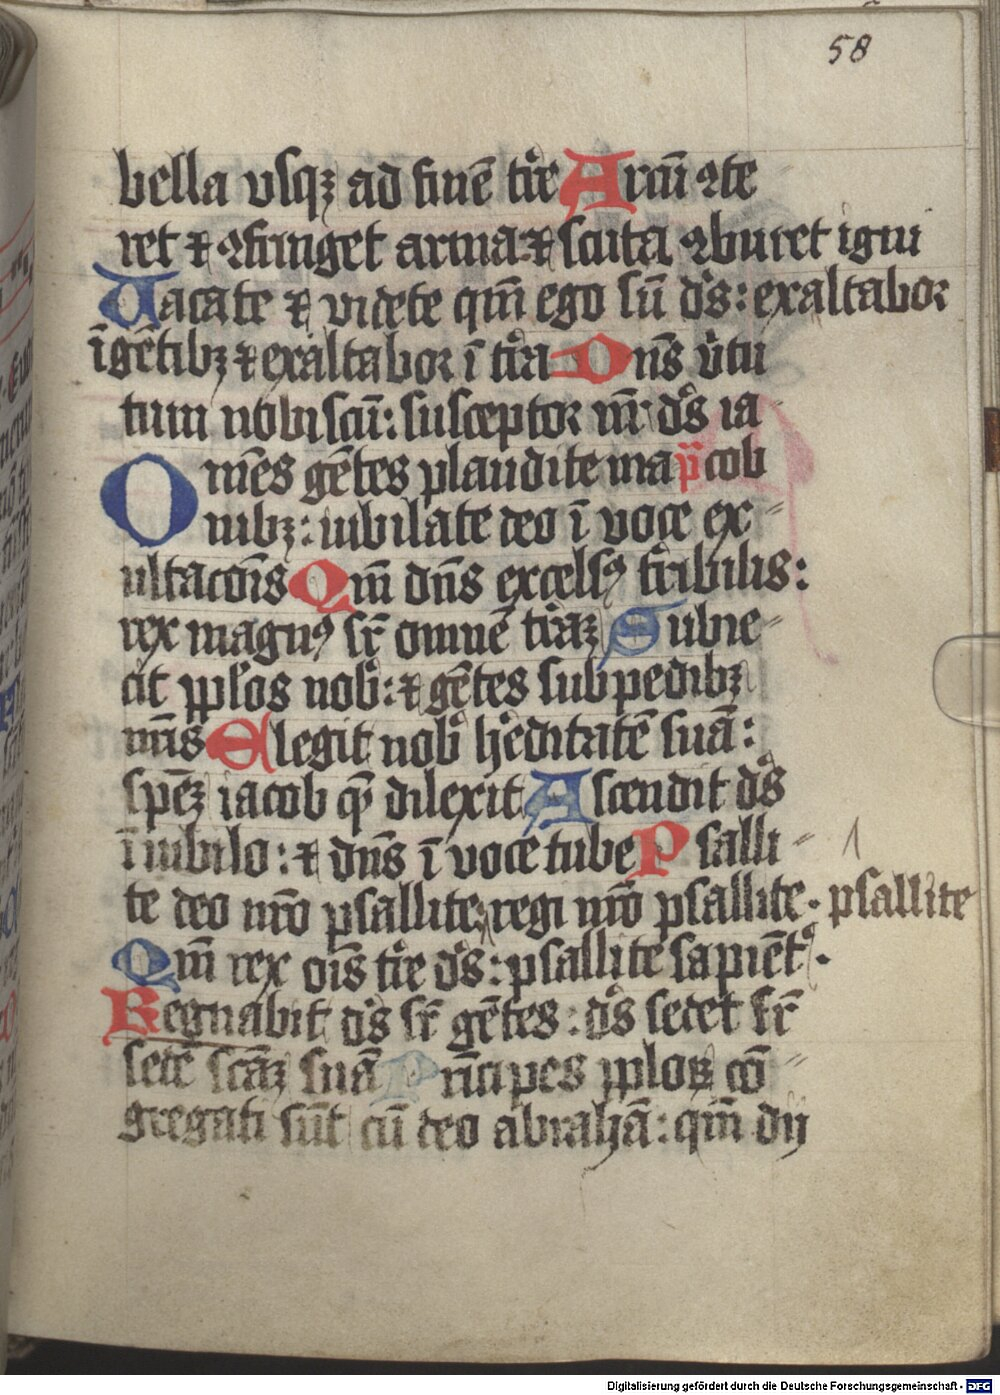 58
bella vsqꝫ ad finē tr̄e Arcū ꝯte
ret ⁊ ꝯfringet arma ⁊ scuta ꝯburet igni
Uacate ⁊ videte qm̄ ego sū ds̄: exaltabor
ī gētibꝫ ⁊ exaltabor ī tr̄a Dn̄s v̄tu
tum nobiscū: susceptor nr̄ ds̄ ia
Omēs gētes plaudite ma p̄s cob
nibꝫ: iubilate deo ī voce ex
ultacōis Qm̄ dn̄s excelsꝰ tr̄ibilis:
rex magnꝰ sr̄ omnē tr̄aꝫ Subie
cit pp̄los nob̄: ⁊ gētes sub pedibꝫ
nr̄is Elegit nob̄ hēditatē suā:
spēꝫ iacob qͣ dilexit Ascendit ds̄
ī iubilo: ⁊ dn̄s ī voce tube Psalli
te deo nrō psallite regi nrō psallite · psallite
Qm̄ rex oīs tr̄e ds̄: psallite sapiētꝰ.
Regnabit ds̄ sr̄ gētes: ds̄ sedet sr̄
sedē scāꝫ suā Prīcipes pp̄loꝝ cō
gregati sūt cū deo abrahā: qm̄ dij
Digitalisierung gefördert durch die Deutsche Forschungsgemeinschaft - DFG